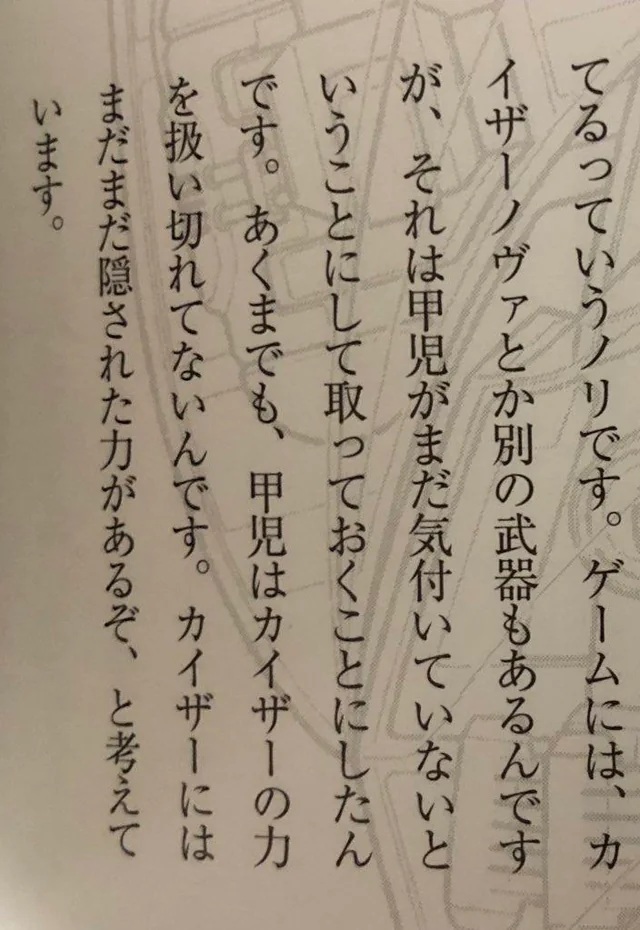 てるっていうノリです。ゲームには、カ
イザーノヴァとか別の武器もあるんです
が、それは甲児がまだ気付いていないと
いうことにして取っておくことにしたん
です。あくまでも、甲児はカイザーの力
を扱い切れてないんです。カイザーには
まだまだ隠された力があるぞ、と考えて
います。